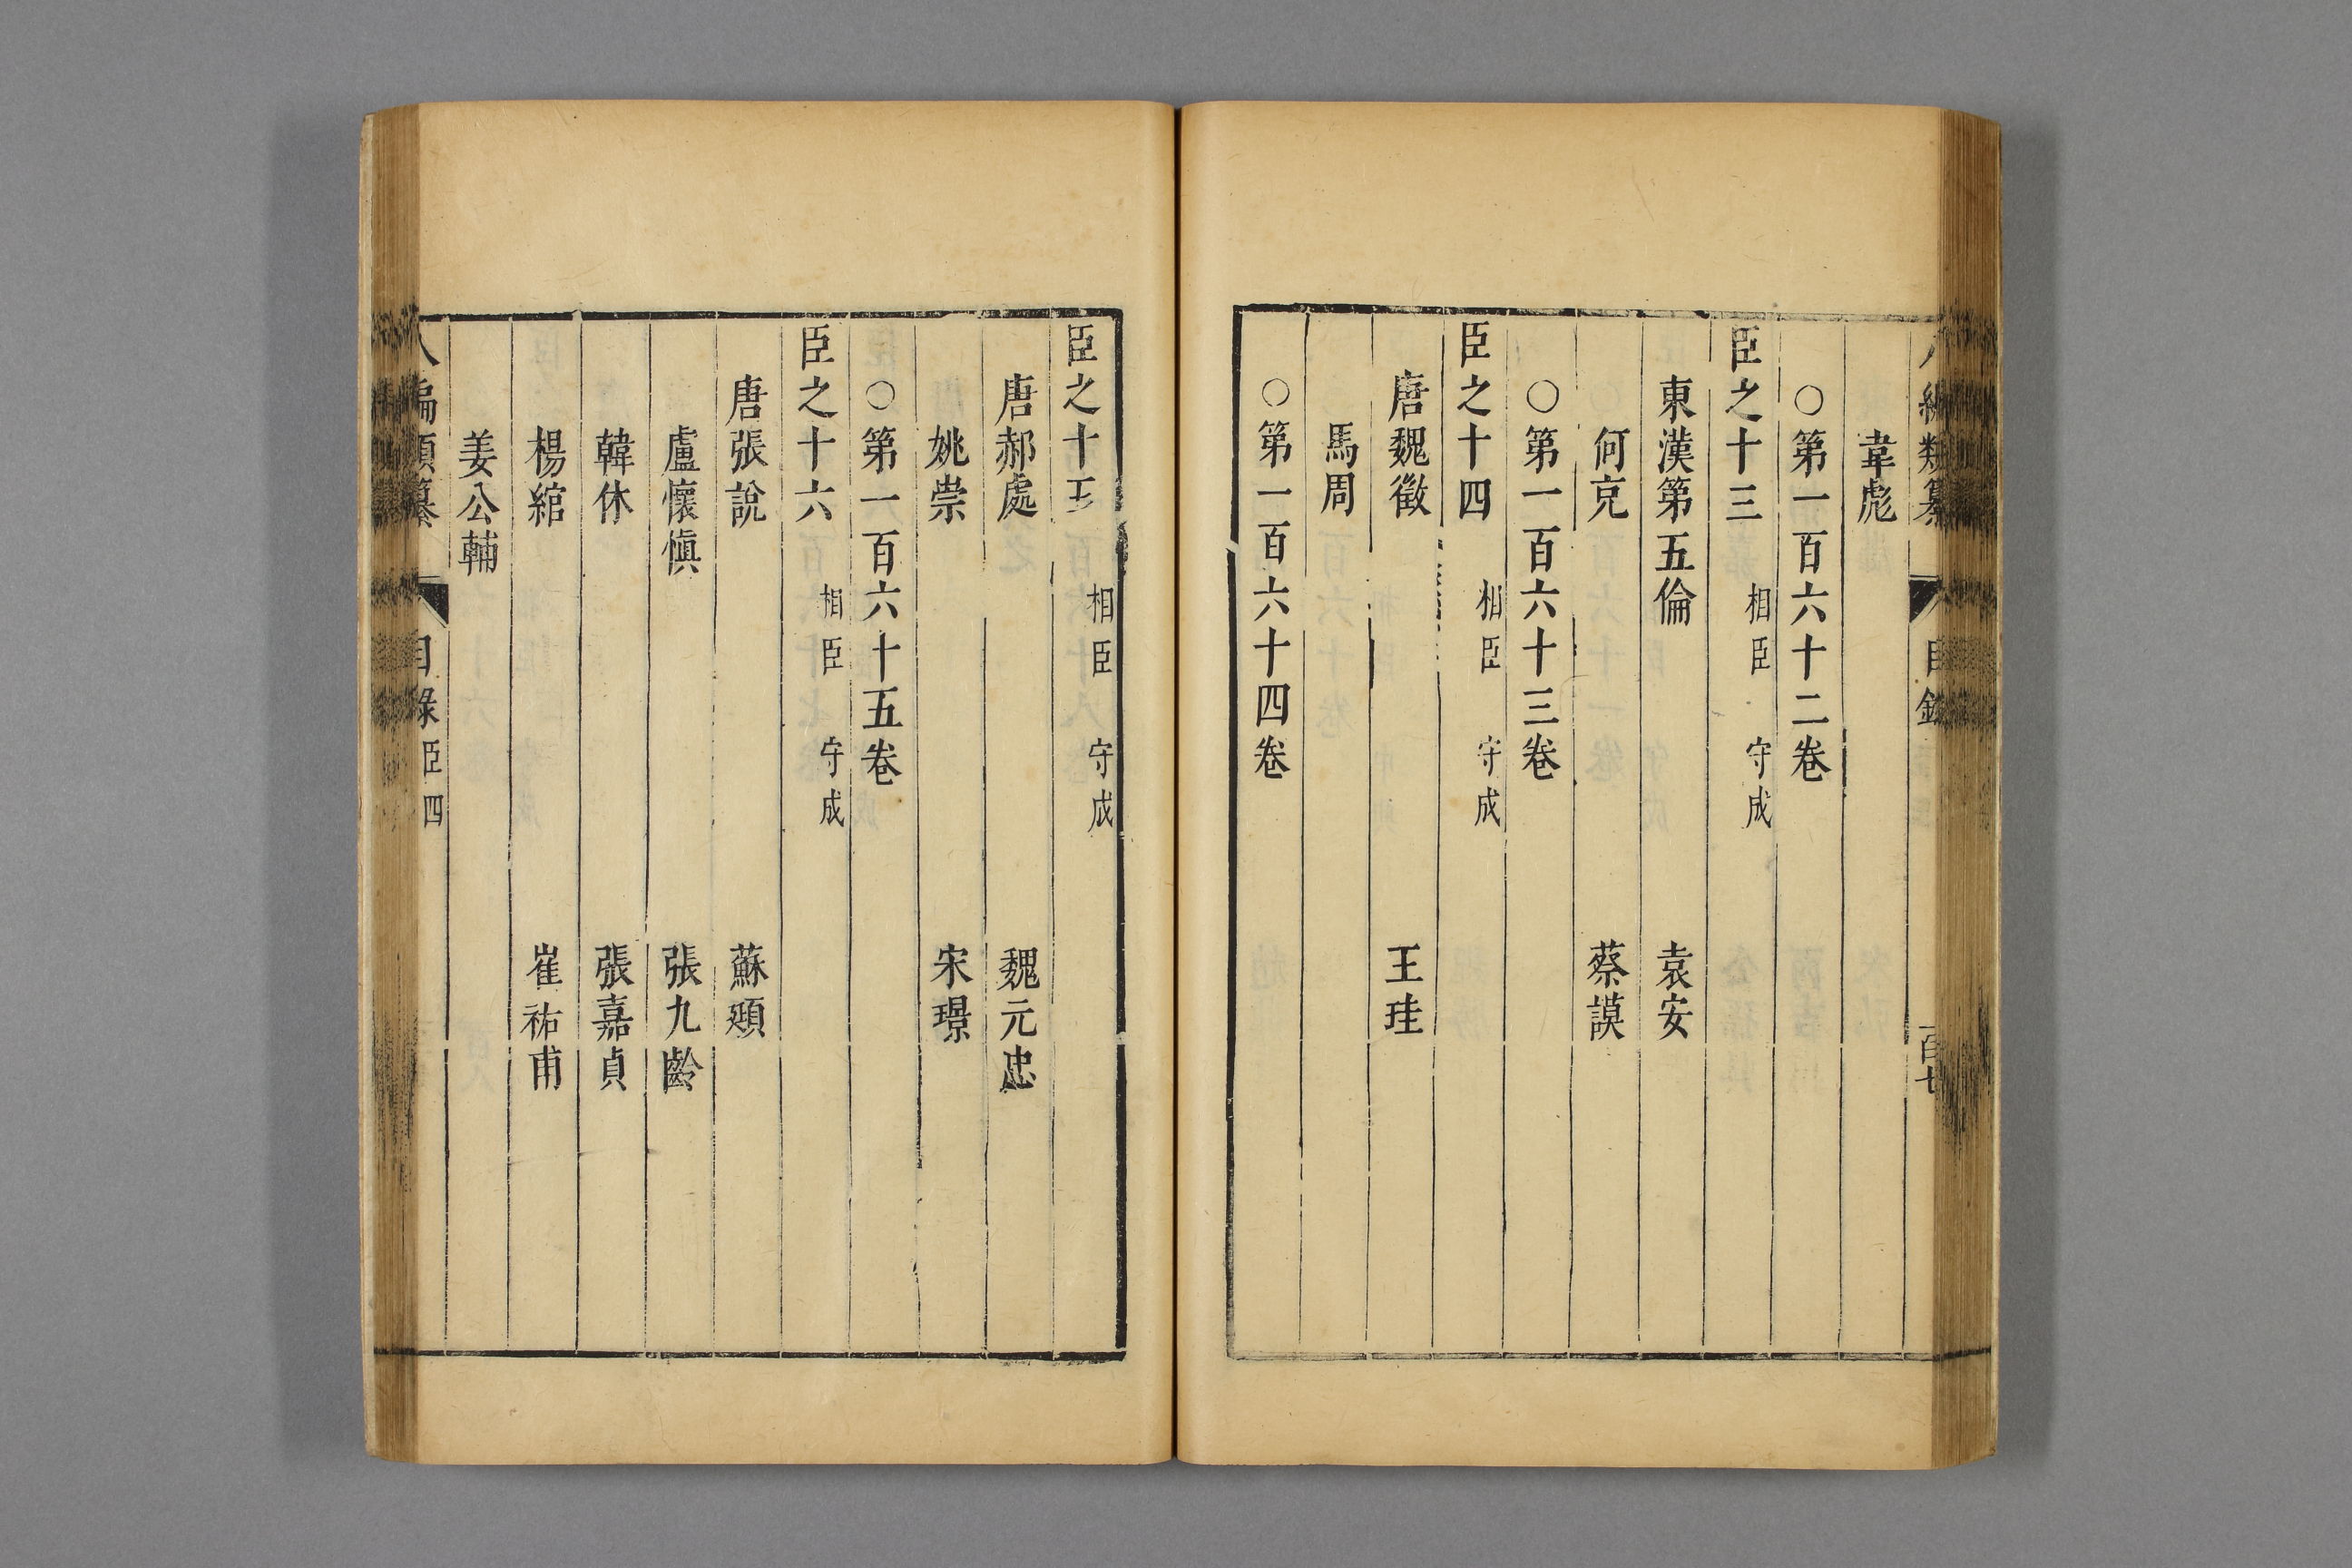 韋彪
○第一百六十二卷
臣之十三 相臣 守成
東漢第五倫 袁安
何克 蔡謨
○第一百六十三卷
臣之十四 相臣 守成
唐魏徵 王珪
馬周
○第一百六十四卷
臣之十五 相臣 守成
唐郝處 魏元忠
姚崇 宋璟
○第一百六十五卷
臣之十六 相臣 守成
唐張說 蘇頲
盧懷愼 張九齡
韓休 張嘉貞
楊綰 崔祐甫
姜公輔
八編類纂 目錄 臣四